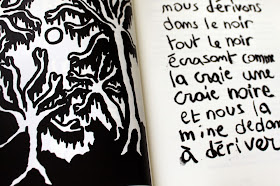 nous dérivons
dans le noir
tout le noir
écrasant comme
la craie une
craie noire
et nous la
mine dedan
à dériver